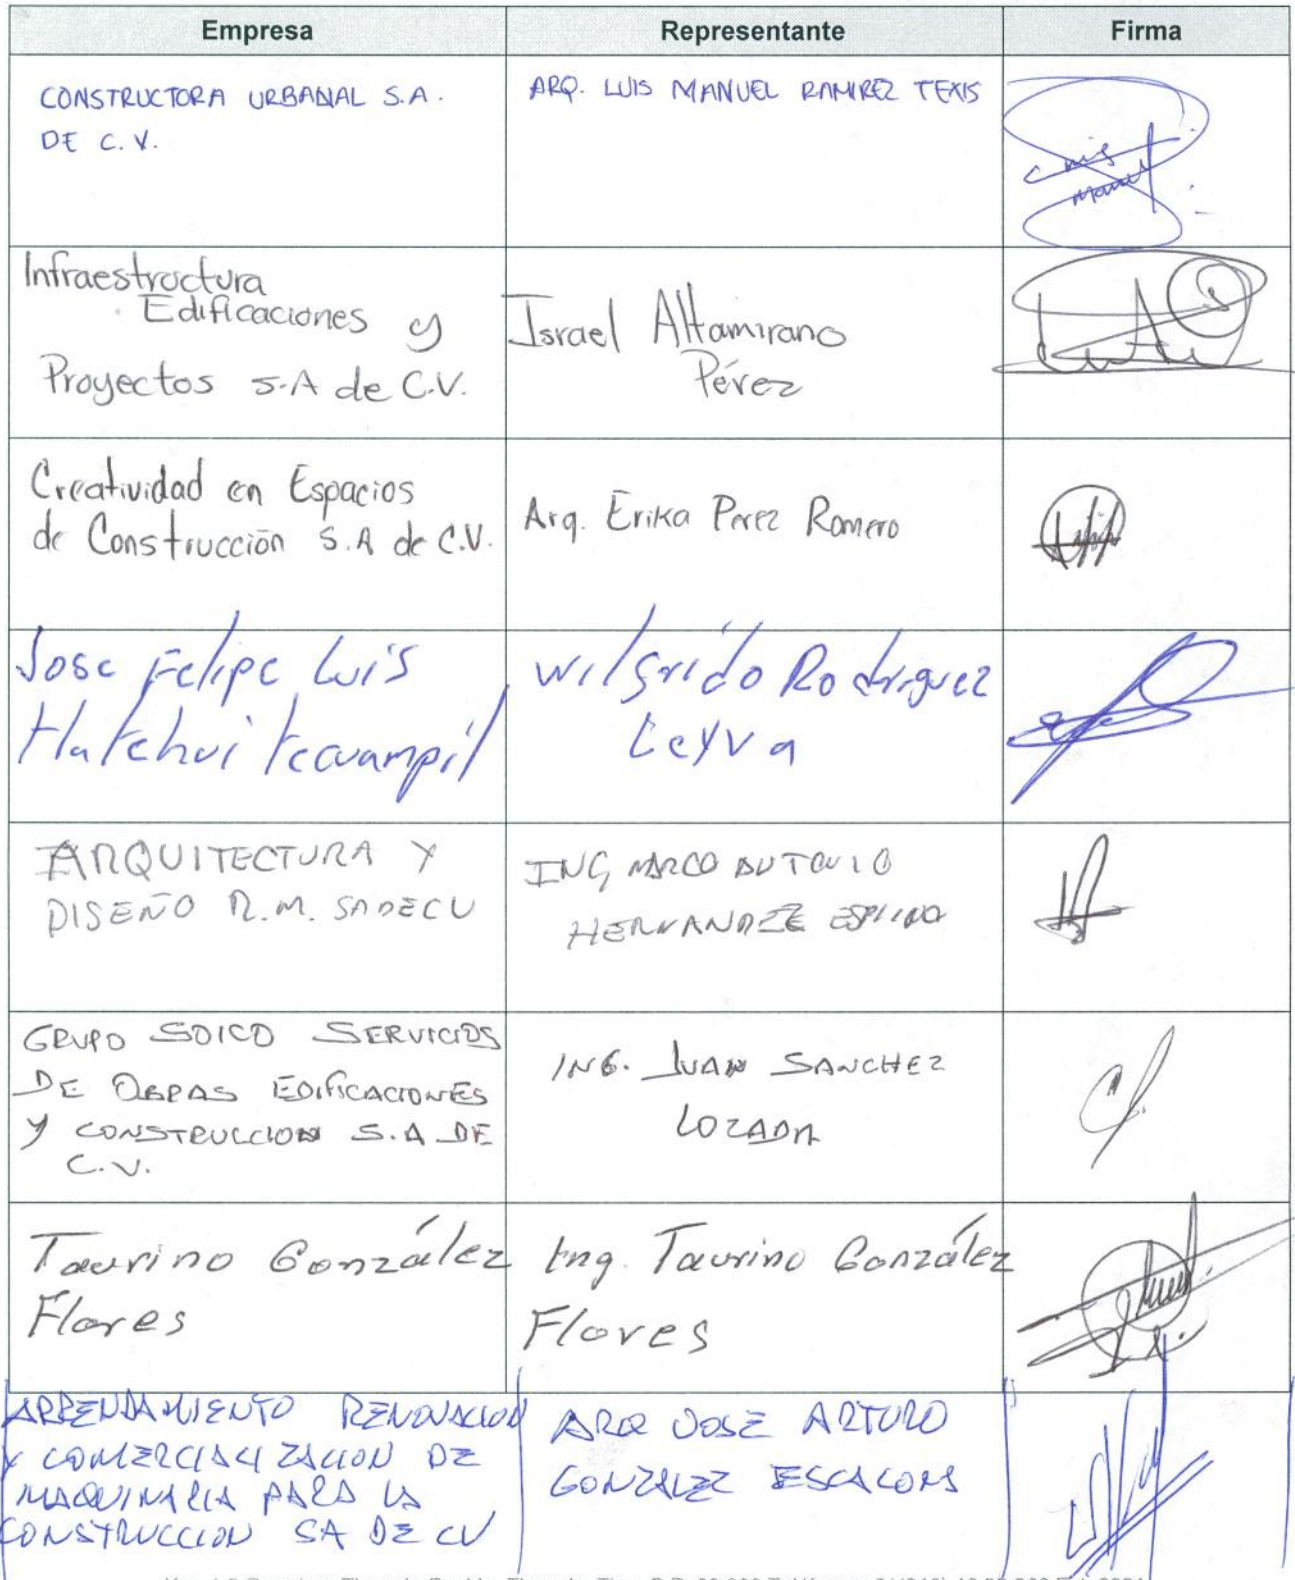 Empresa Representante Firma
CONSTRUCTORA URBANAL S.A.
DE C.V.
ARQ. LUIS MANUEL RAMIREZ TEXIS
Luis
Manuel
Infraestructura
Edificaciones y
Proyectos S.A de C.V.
Israel Altamirano
Pérez
Creatividad en Espacios
de Construcción S.A de C.V.
Arq. Erika Perez Romero
Jose Felipe Luis
Tlatehui Tecuampil
Wilfrido Rodriguez
Leyva
ARQUITECTURA Y
DISEÑO R.M. SADECV
ING MARCO ANTONIO
HERNANDEZ ESPINO
GRUPO SOICO SERVICIOS
DE OBRAS EDIFICACIONES
Y CONSTRUCCION S.A DE
C.V.
ING. JUAN SANCHEZ
LOZADA
Taurino González
Flores
Ing. Taurino González
Flores
ARRENDAMIENTO RENOVACION
Y COMERCIALIZACION DE
MAQUINARIA PARA LA
CONSTRUCCION SA DE CV
ARQ JOSE ARTURO
GONZALEZ ESCALONA